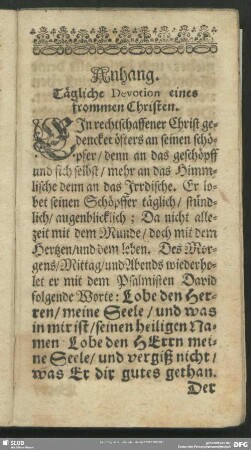 Anhang.
Tägliche Devotion eines
frommen Christen.
EIn rechtschaffener Christ ge-
dencket öfters an seinen schö-
pfer/ denn an das geschöpff
und sich selbst/ mehr an das Himm-
lische denn an das Irrdische. Er lo-
bet seinen Schöpffer täglich/ stünd-
lich/ augenblicklich; Da nicht alle-
zeit mit dem Munde/ doch mit dem
Hertzen/und dem leben. Des Mor-
gens/Mittag/und Abends wiederho-
let er mit dem Psalmisten David
folgende Worte: Lobe den Her-
ren/ meine Seele/ und was
in mir ist/seinen heiligen Na-
men Lobe den HErrn mei-
ne Seele/ und vergiß nicht/
was Er dir gutes gethan.
Der
SLUB